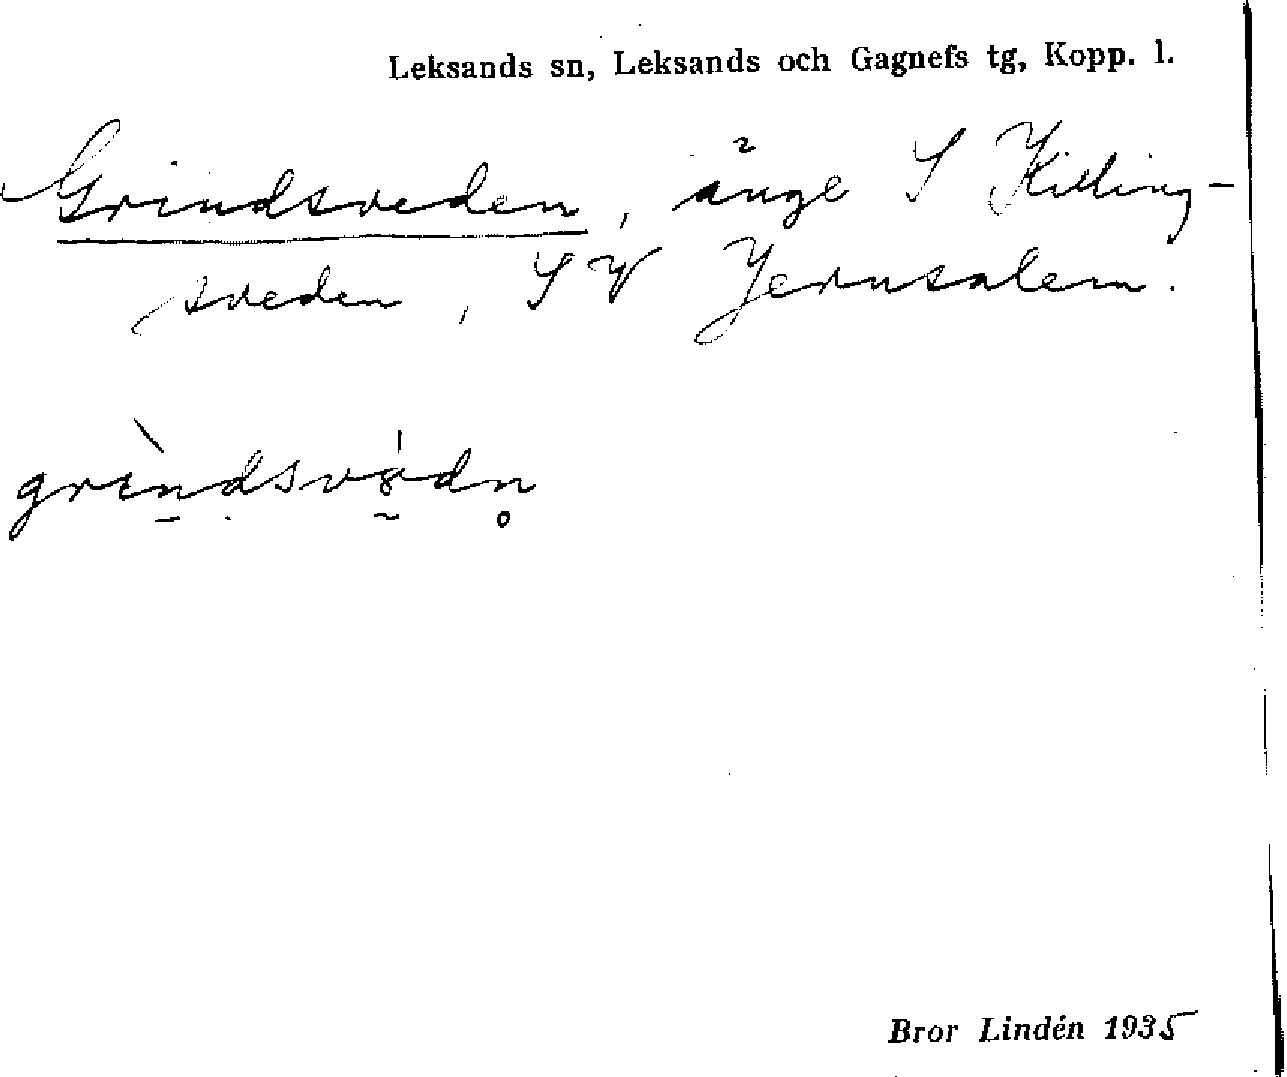 Leksands sn, Leksands och Gagnefs tg, Kopp. l.
Grindsveden, änge S Killing-
sveden, SV Jerusalem.
Bror Lindén 1935